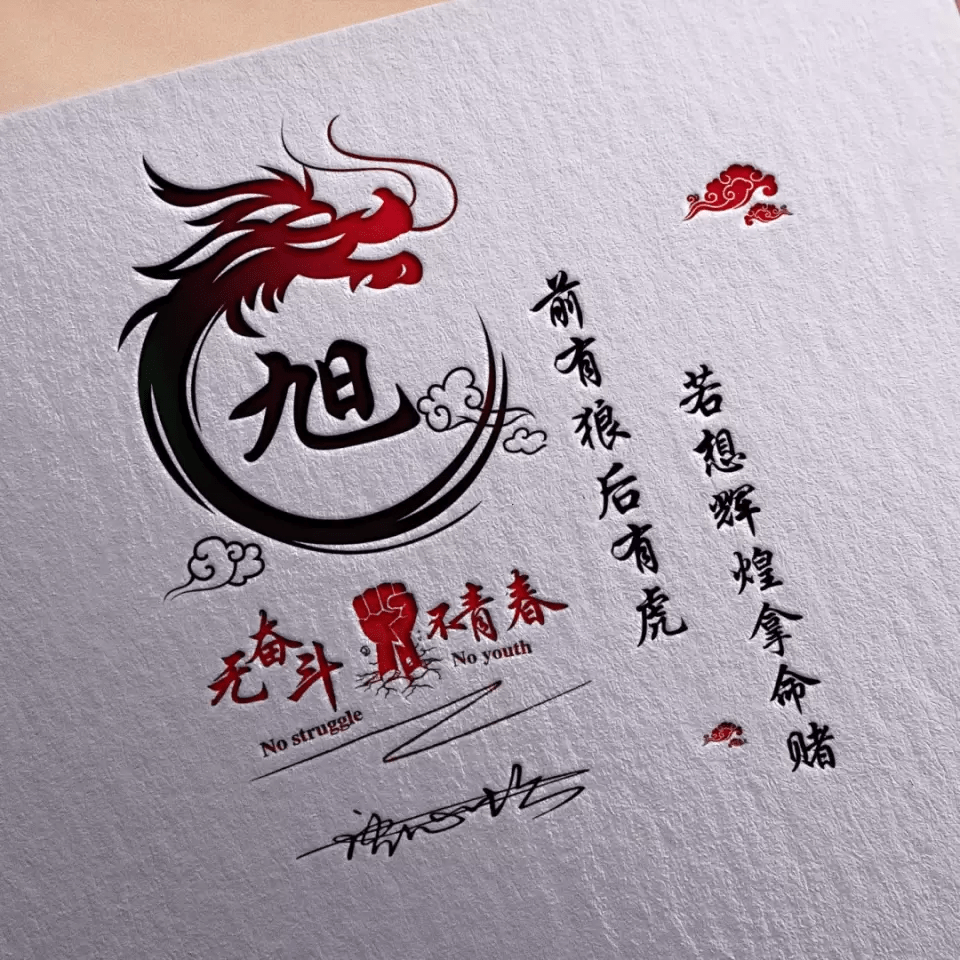 旭
前有狼后有虎
若想辉煌拿命赌
无奋斗 不青春
No struggle
No youth